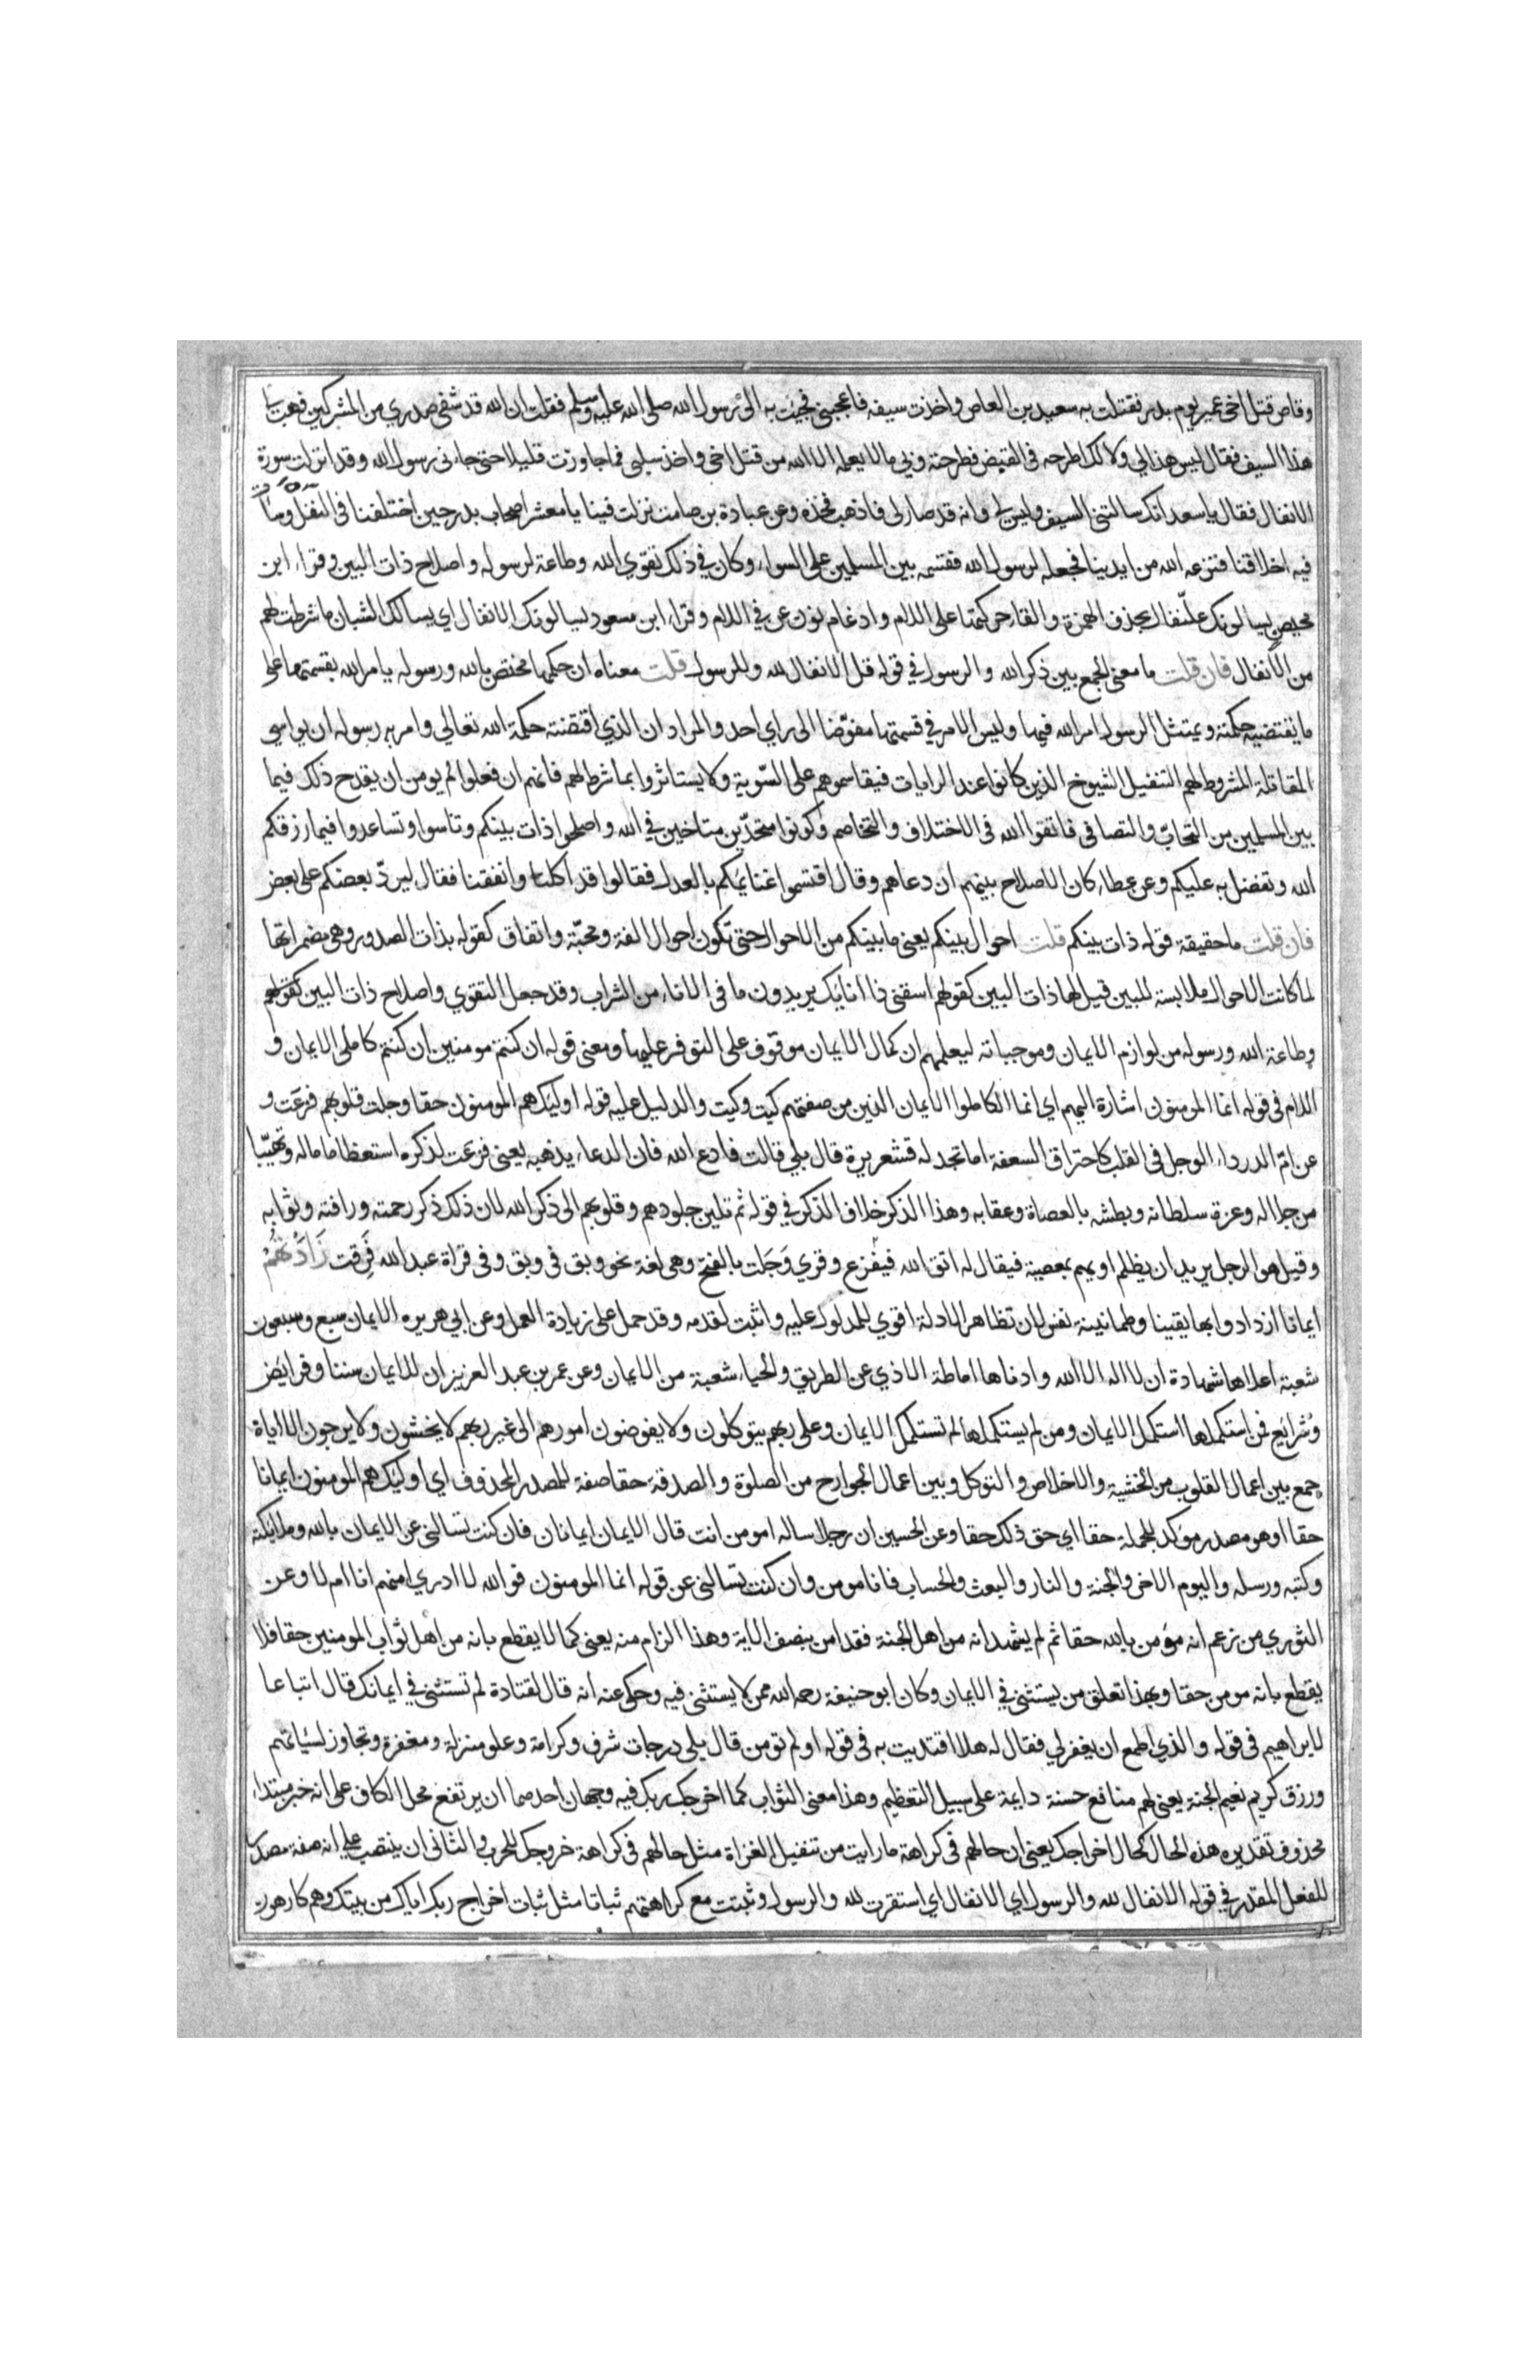 وقاص قتل اخى عمير يوم بدر فقتلت به سعيد بن العاص واخذت سيفه فاعجبنى فجيت به الى رسول الله صلى الله عليه وسلم فقلت ان الله قد شفى صدري من المشركين فهب لى
هذا السيف فقال ليس هذا لي ولا لك اطرحه فى القبض فطرحته وبي ما لا يعلمه الا الله من قتل اخى واخذ سلبى فما جاوزت قليلا حتى جاءنى رسول الله وقد انزلت سورة
الانفال فقال يا سعد انك سالتنى السيف وليس لى وانه قد صار لى فاذهب فخذه وعن عبادة بن صامت نزلت فينا يا معشر اصحاب بدر حين اختلفنا فى النفل وساءت
فيه اخلاقنا فنزعه الله من ايدينا فجعله لرسول الله فقسمه بين المسلمين على السواء وكان في ذلك تقوي الله وطاعة لرسوله واصلاح ذات البين وقراء ابن
محيصن يسالونك علّنفال بحذف الهمزة والقاء حركتها على اللام وادغام نون عن في اللام وقراء ابن مسعود يسالونك الانفال اي يسالك الشبان ما شرطت لهم
من الانفال فان قلت ما معنى الجمع بين ذكر الله والرسول في قوله قل الانفال لله وللرسول قلت معناه ان حكمها مختص بالله ورسوله يامر الله بقسمتها على
ما يقتضيه حكمته ويمتثل الرسول امر الله فيها وليس الامر في قسمتها مفوّضا الى راي احد والمراد ان الذي اقتضته حكمة الله تعالي وامر به رسوله ان يواسي
المقاتلة المشروط لهم التنفيل الشيوخ الذين كانوا عند الرايات فيقاسموهم على السّوية ولا يستاثروا بما شرط لهم فانهم ان فعلوا لم يومن ان يقدح ذلك فيما
بين المسلمين من التحابّ والتصافى فاتقوا الله فى الاختلاف والتخاصم وكونوا متحدّين متاخين في الله واصلحوا ذات بينكم وتاسوا وتساعدوا فيما رزقكم
الله وتفضل به عليكم وعن عطاء كان الاصلاح بينهم ان دعاهم وقال اقتسموا غنايمكم بالعدل فقالوا قد اكلنا وانفقنا فقال ليردّ بعضكم على بعض
فان قلت ما حقيقة قوله ذات بينكم قلت احوال بينكم يعنى ما بينكم من الاحوال حتى تكون احوال الفة ومحبّة واتفاق كقوله بذات الصدور وهى مضمراتها
لما كانت الاحوال ملابسة للبين قيل لها ذات البين كقولهم اسقنى ذا انايك يريدون ما فى الاناء من الشراب وقد جعل التقوي واصلاح ذات البين
وطاعة الله ورسوله من لوازم الايمان وموجباته ليعلمهم ان كمال الايمان موقوف على التوفر عليها ومعنى قوله ان كنتم مومنين ان كنتم كاملى الايمان و
اللام فى قوله انما المومنون اشارة اليهم اي انما الكاملوا الايمان الذين من صفتهم كيت وكيت والدليل عليه قوله اوليك هم المومنون حقا وجلت قلوبهم فزعت و
عن امّ الدرداء الوجل فى القلب كاحتراق السعفة اما تجد له قشعريرة قال بلي قالت فادع الله فان الدعاء يذهبه يعنى فزعت لذكره استعظاما له وتهيّبا
من جلاله وعزة سلطانه وبطشه بالعصاة وعقابه وهذا الذكر خلاف الذكر في قوله ثم تلين جلودهم وقلوبهم الى ذكر الله لان ذلك ذكر رحمته ورافته وثوابه
وقيل هو الرجل يريد ان يظلم او يهم بمعصية فيقال له اتق الله فيفزع وقري وَجَلت بالفتح وهى لغة نحو وبق فى وبق وفى قراة عبد الله فَرِقت زادتهم
ايمانا ازدادوا بها يقينا وطمانينة نفس لان تظاهر الادلة اقوي للمدلول عليه واثبت لقدمه وقد حمل على زيادة العمل وعن ابي هريره الايمان سبع وسبعون
شعبة اعلاها شهادة ان لا اله الا الله وادناها اماطة الاذي عن الطريق والحياء شعبة من الايمان وعن عمر بن عبد العزيز ان للايمان سننا وفرايض
وشرايع فمن استكملها استكمل الايمان ومن لم يستكملها لم تستكمل الايمان وعلى ربهم يتوكلون ولا يفوضون امورهم الى غير ربهم لا يخشون ولا يرجون الا اياه
جمع بين اعمال القلوب من الخشية والاخلاص والتوكل وبين اعمال الجوارح من الصلوة والصدقة حقا صفة للمصدر المحذوف اي اوليك هم المومنون ايمانا
حقا او هو مصدر موكد للجملة حقا اي حق ذلك حقا وعن الحسين ان رجلا ساله امومن انت قال الايمان ايمانان فان كنت تسالنى عن الايمان بالله وملايكته
وكتبه ورسله واليوم الاخر والجنة والنار والبعث والحساب فانا مومن وان كنت تسالنى عن قوله انما المومنون فو الله لا ادري امنهم انا ام لا وعن
الثوري من زعم انه مؤمن بالله حقا ثم لم يشهد انه من اهل الجنة فقد امن بنصف الاية وهذا الزام منه يعنى كما لا يقطع بانه من اهل ثواب المومنين حقا فلا
يقطع بانه مومن حقا وبهذا تعلق من يستثنى في الايمان وكان ابو حنيفة رحمه الله ممن لا يستثنى فيه وحكى عنه انه قال لقتادة لم تستثنى في ايمانك قال اتباعا
لابراهيم فى قوله والذي اطمع ان يغفر لي فقال له هلا اقتديت به فى قوله او لم تومن قال بلي درجات شرف وكرامة وعلو منزلة ومغفرة وتجاوز لسيّاتهم
ورزق كريم نعيم الجنة يعنى لهم منافع حسنة دايمة على سبيل التعظيم وهذا معنى الثواب كما اخرجك ربك فيه وجهان احدهما ان يرتفع محل الكاف على انه خبر مبتداء
محذوف تقديره هذه الحال كحال اخراجك يعنى ان حالهم فى كراهة ما رايت من تنفيل الغزاة مثل حالهم فى كراهة خروجك للحرب والثانى ان ينتصب على انه صفة مصدر
للفعل المقدر في قوله الانفال لله والرسول اي الانفال اي استقرت لله والرسول وثبتت مع كراهتهم ثباتا مثل ثبات اخراج ربك اياك من بيتك وهم كارهون